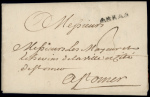 ARRAS
Messieurs
Messieurs les Mayeur et
Echevins de la ville et Cité
de St omer
a St omer